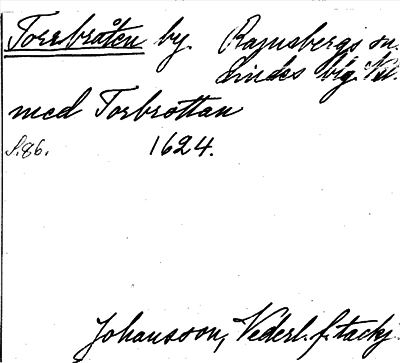 Torsbråten by. Ramsbergs sn.
Lindes bg. Vstl.
med Torbrottan
S. 86. 1624.
Johansson, Vederl. f. tackj.